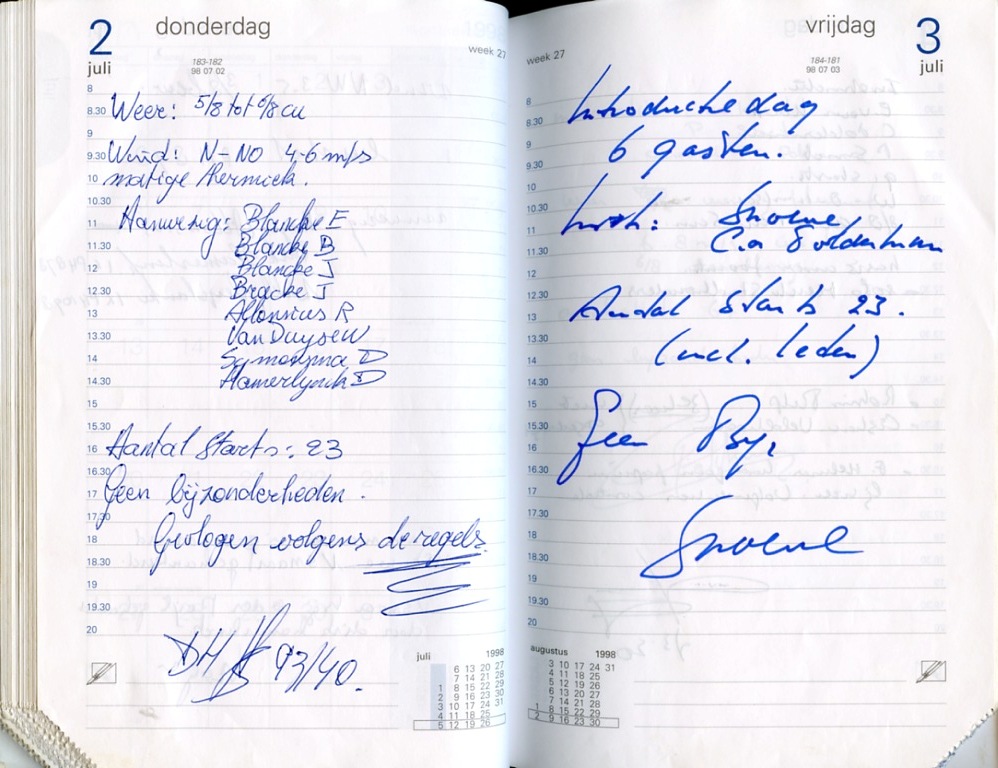 2 donderdag
juli
183-182
98 07 02
week 27
8
8.30 Weer: 5/8 tot 6/8 cu
9
9.30 Wind: N-NO 4-6 m/s
10 matige thermiek.
10.30
11 Aanwezig: Blancke E
11.30 Blancke B
12 Blancke J
12.30 Bracke J
13 Allonsius R
13.30 Van Duyse W
14 D
14.30 Hamerlynck D
15
15.30
16 Aantal Starts: 23
16.30
17 Geen bijzonderheden.
17.30
18 Gevlogen volgens de regels.
18.30
19
19.30
20
DH 93/40.
juli 1998
6 13 20 27
7 14 21 28
1 8 15 22 29
2 9 16 23 30
3 10 17 24 31
4 11 18 25
5 12 19 26
vrijdag 3
juli
week 27
184-181
98 07 03
8
8.30 Introductie dag
9
9.30 6 gasten.
10
10.30
11 Instr: Snoeue
11.30 C.o Polderman
12
12.30
13 Aantal Starts 23.
13.30
14 (incl. leden)
14.30
15
15.30
16 Geen Bijz.
16.30
17
17.30
18 Snoeue
18.30
19
19.30
20
augustus 1998
3 10 17 24 31
4 11 18 25
5 12 19 26
6 13 20 27
7 14 21 28
1 8 15 22 29
2 9 16 23 30